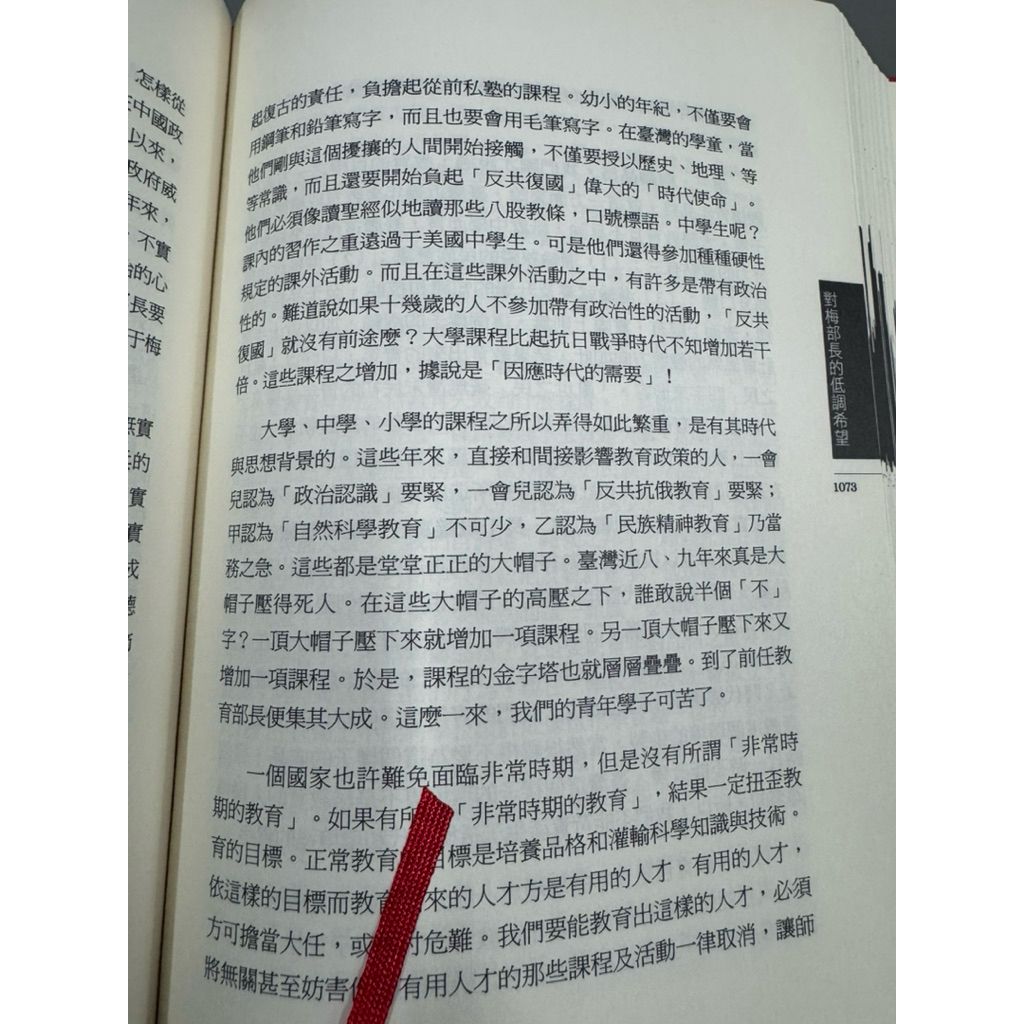 起復古的責任，負擔起從前私塾的課程。幼小的年紀，不僅要會
用鋼筆和鉛筆寫字，而且也要會用毛筆寫字。在臺灣的學童，當
他們剛與這個擾攘的人間開始接觸，不僅要授以歷史、地理、等
等常識，而且還要開始負起「反共復國」偉大的「時代使命」。
他們必須像讀聖經似地讀那些八股教條，口號標語。中學生呢？
課內的習作之重遠過于美國中學生。可是他們還得參加種種硬性
規定的課外活動。而且在這些課外活動之中，有許多是帶有政治
性的。難道說如果十幾歲的人不參加帶有政治性的活動，「反共
復國」就沒有前途麼？大學課程比起抗日戰爭時代不知增加若干
倍。這些課程之增加，據說是「因應時代的需要」！
大學、中學、小學的課程之所以弄得如此繁重，是有其時代
與思想背景的。這些年來，直接和間接影響教育政策的人，一會
兒認為「政治認識」要緊，一會兒認為「反共抗俄教育」要緊；
甲認為「自然科學教育」不可少，乙認為「民族精神教育」乃當
務之急。這些都是堂堂正正的大帽子。臺灣近八、九年來真是大
帽子壓得死人。在這些大帽子的高壓之下，誰敢說半個「不」
字？一頂大帽子壓下來就增加一項課程。另一頂大帽子壓下來又
增加一項課程。於是，課程的金字塔也就層層疊疊。到了前任教
育部長便集其大成。這麼一來，我們的青年學子可苦了。
一個國家也許難免面臨非常時期，但是沒有所謂「非常時
期的教育」。如果有所「非常時期的教育」，結果一定扭歪教
育的目標。正常教育目標是培養品格和灌輸科學知識與技術。
依這樣的目標而教育來的人才方是有用的人才。有用的人才，
方可擔當大任，或付危難。我們要能教育出這樣的人才，必須
將無關甚至妨害有用人才的那些課程及活動一律取消，讓師
對梅部長的低調希望
1073
怎樣從
中國政
以來，
政府威
年來，
不實
治的心
長要
于梅
無實
的
實
實
德